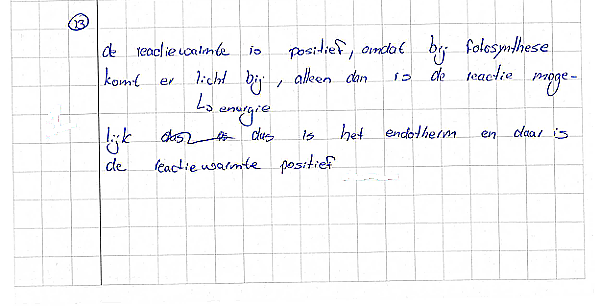 13
de reactiewarmte is positief, omdat bij fotosynthese
komt er licht bij, alleen dan is de reactie moge-
↳ energie
lijk dus is het endotherm en daar is
de reactiewarmte positief